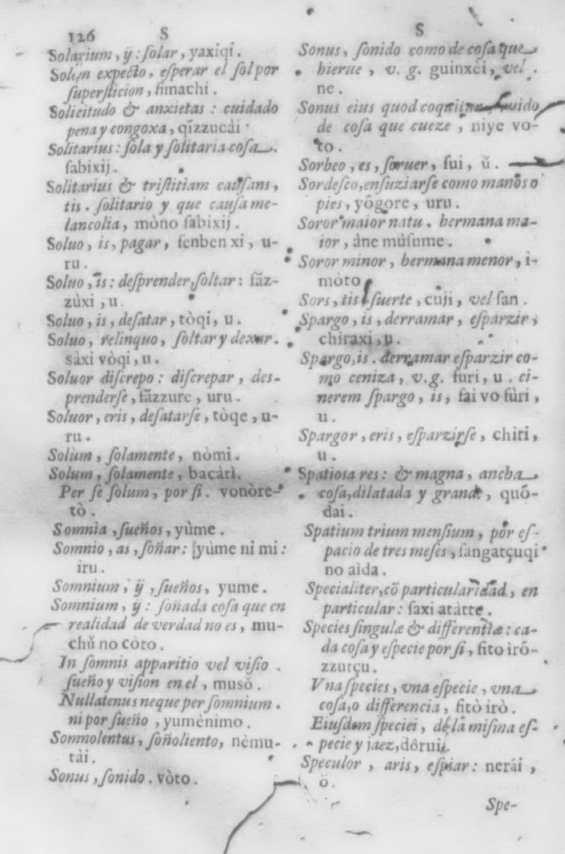 126 S
Solarium, ÿ : ſolar, yaxiqi.
Solẽm expecto, eſperar el ſol por
ſuperſticion, fimachi.
Solicitudo & anxietas : cuidado
pena y congoxa, qizzucài.
Solitarius : ſola y ſolitaria coſa.
ſabixij.
Solitarius & triſtitiam cauſans,
tis. ſolitario y que cauſa me-
lancolia, mòno ſabixij.
Soluo, is, pagar, fenben xi, u-
ru.
Soluo, is : deſprender, ſoltar : fàz-
zùxi, u.
Soluo, is, deſatar, tòqi, u.
Soluo, relinquo, ſoltar y dexar.
sàxi vòqi, u.
Soluor diſcrepo : diſcrepar, des-
prenderſe, fàzzure, uru.
Soluor, eris, deſatarſe, tòqe, u-
ru.
Solùm, ſolamente, nòmi.
Solum, ſolamente, bacàri.
Per ſe ſolum, por ſi. vonòre-
tò.
Somnia, ſueños, yùme.
Somnio, as, ſoñar: yùme ni mi :
iru.
Somnium, ÿ, ſueños, yume.
Somnium, ÿ : ſoñada coſa que en
realidad de verdad no es, mu-
chũ no còto.
In ſomnis apparitio vel viſio.
ſueño y viſion en el, musò.
Nullatenus neque per ſomnium.
ni por ſueño, yumènimo.
Somnolentus, ſoñoliento, nèmu-
tài.
Sonus, ſonido. vòto.
S
Sonus, ſonido como de coſa que
hierue, v. g. guinxèi, vel.
ne.
Sonus eius quod coquitur ruido
de coſa que cueze, niye vo-
to.
Sorbeo, es, ſoruer, ſui, ũ.
Sordeſco, enſuziarſe como manos o
pies, yõgore, uru.
Soror maior natu. hermana ma-
ior, àne mùſume.
Soror minor, hermana menor, i-
mòto
Sors, tis ſuerte, cùji, vel ſan.
Spargo, is, derramar, eſparzir,
chiraxi, u.
Spargo, is. derramar eſparzir co-
mo ceniza, v. g. furi, u. ci-
nerem ſpargo, is, fai vo fùri,
u.
Spargor, eris, eſparzirſe, chiri,
u.
Spatiosa res : & magna, ancha
coſa, dilatada y grande, quõ-
dai.
Spatium trium menſium, por eſ-
pacio de tres meſes, ſangatçuqi
no aida.
Specialiter, cõ particularidad, en
particular : ſaxi atàtte.
Species ſingulæ & differentiæ : ca-
da coſa y eſpecie por ſi, fito irõ-
zzutçu.
Vna ſpecies, vna eſpecie, vna
coſa, o differencia, fitò irò.
Eiuſdem ſpeciei, de la miſma eſ-
pecie y jaez, dòrui.
Speculor, aris, eſpiar : nerài,
ò.
Spe-